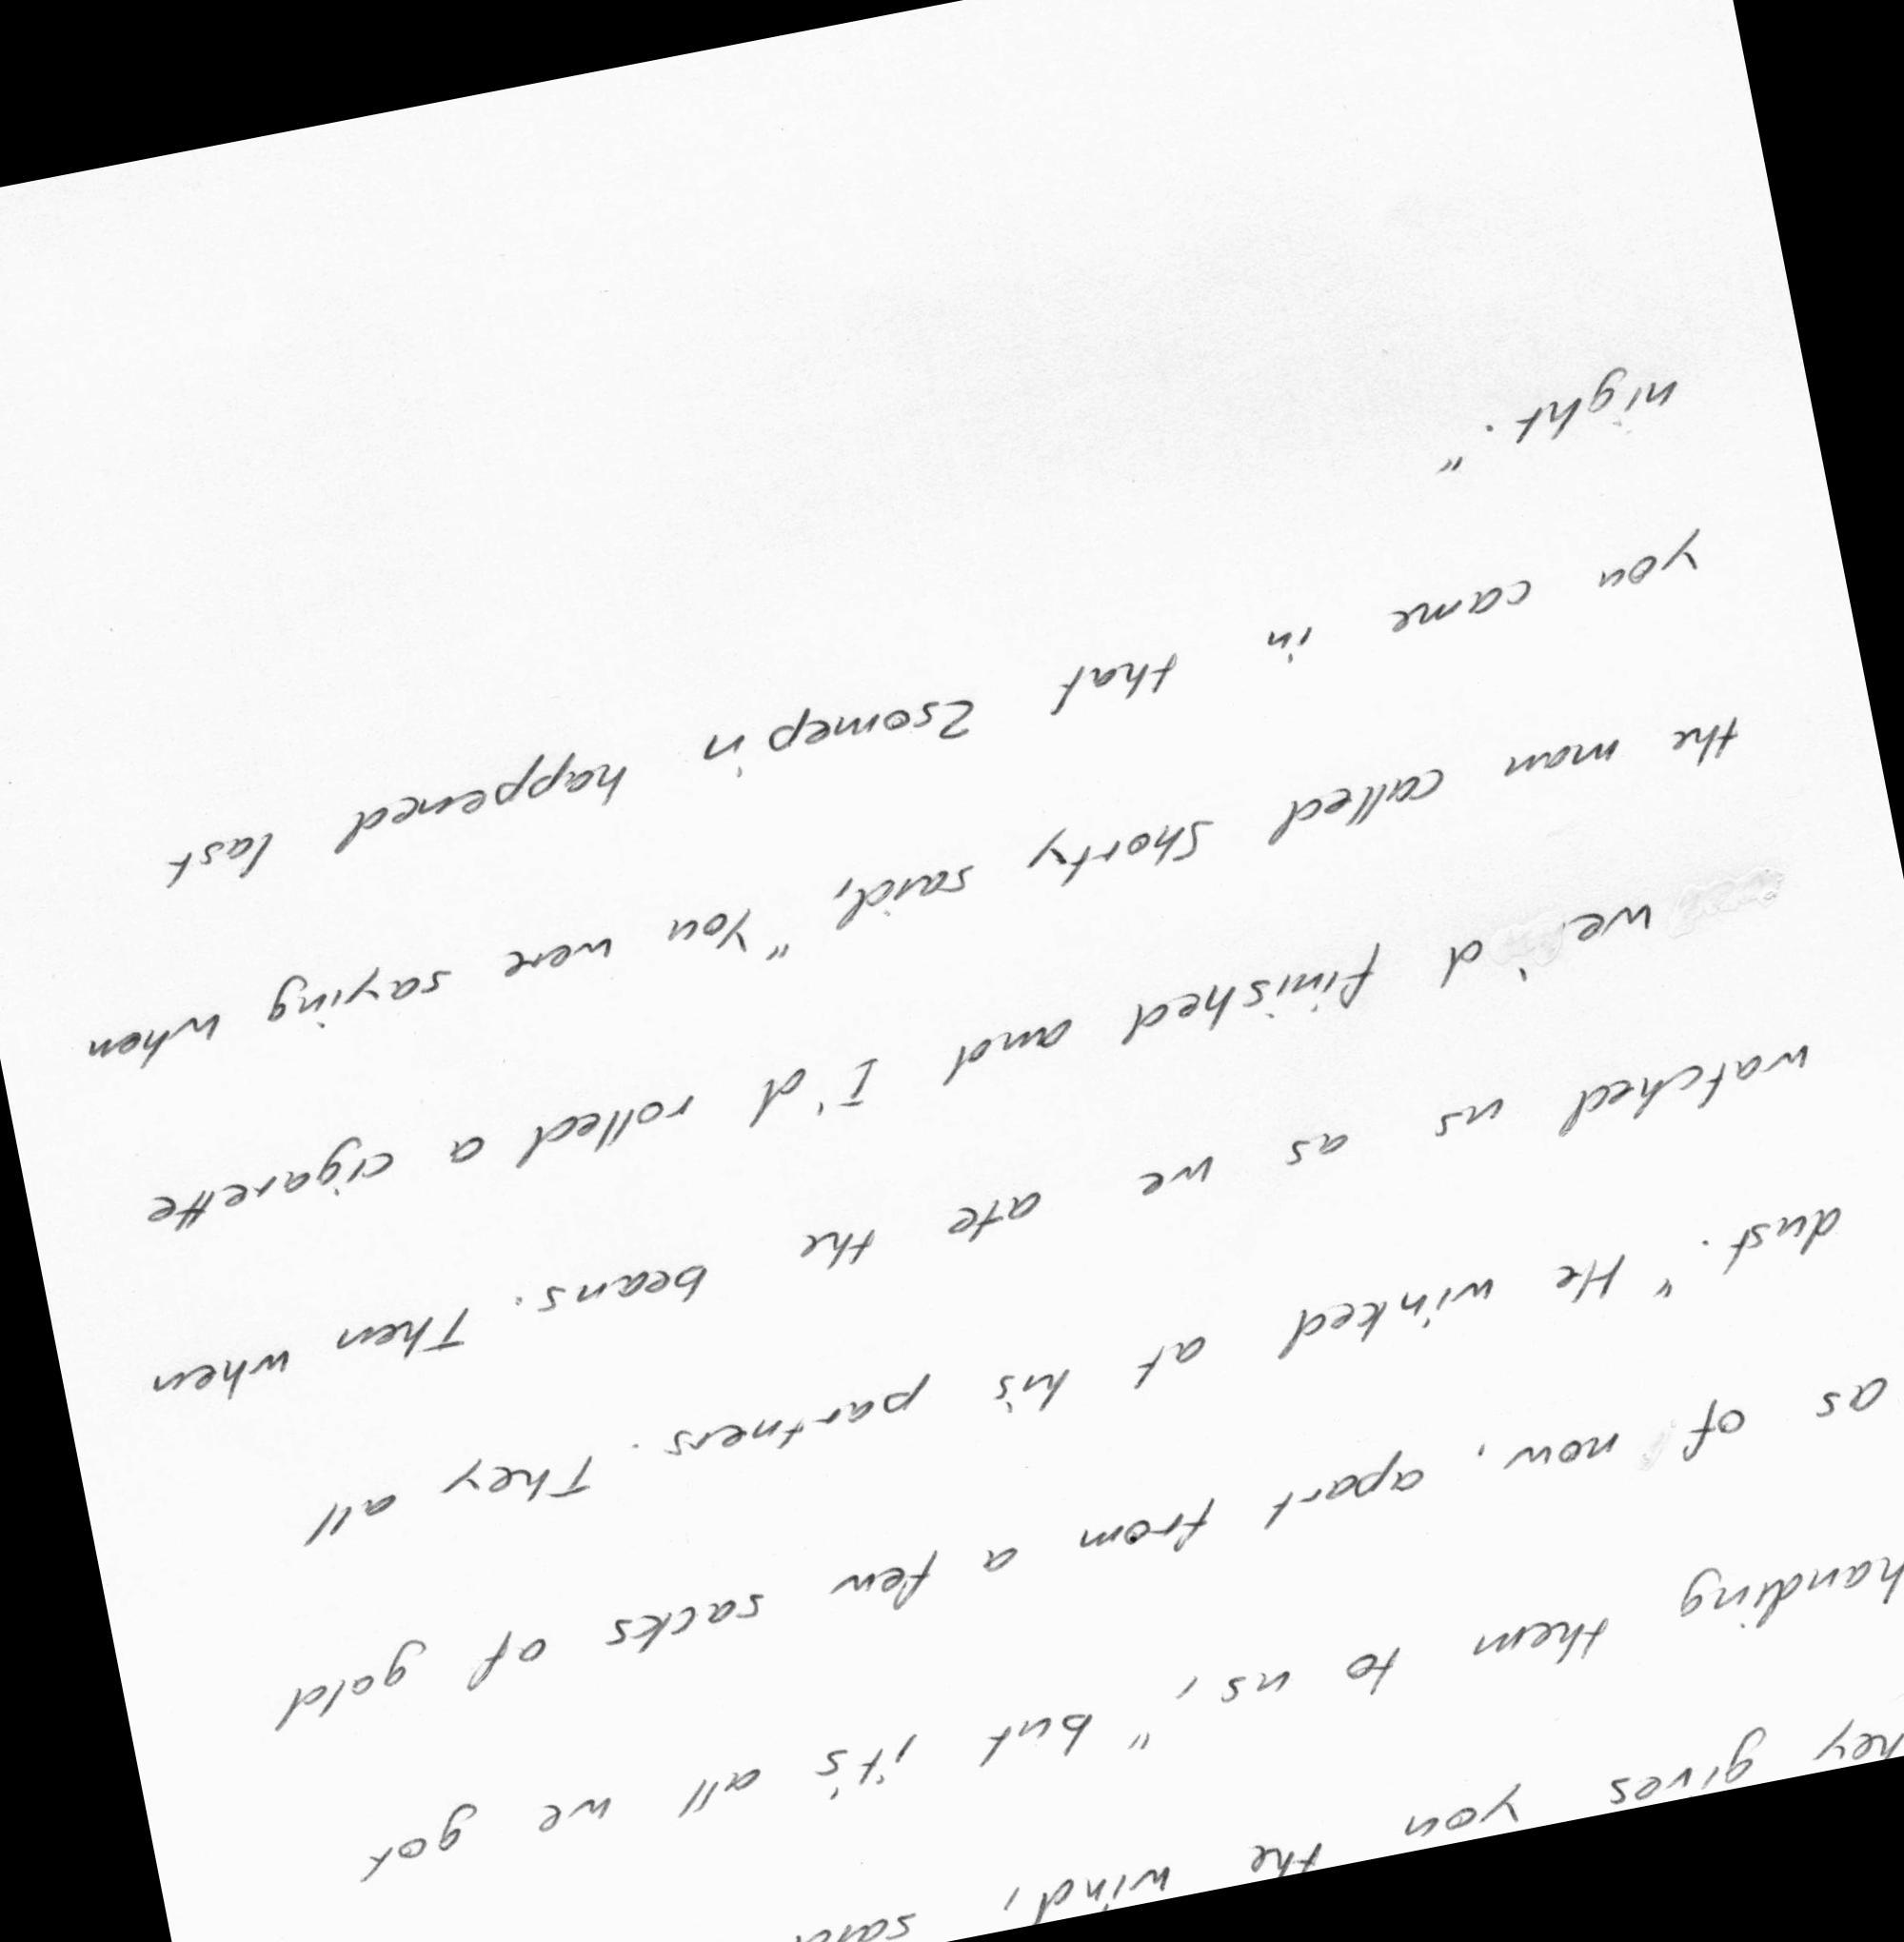 hey gives you the wind, said
handing them to us, "but it's all we got
as of now, apart from a few sacks of gold
dust." He winked at his partners. They all
watched us as we ate the beans. Then when
we'd finished and I'd rolled a cigarette
the man called Shorty said, "You were saying when
you came in that 2somep'n happened last
night."